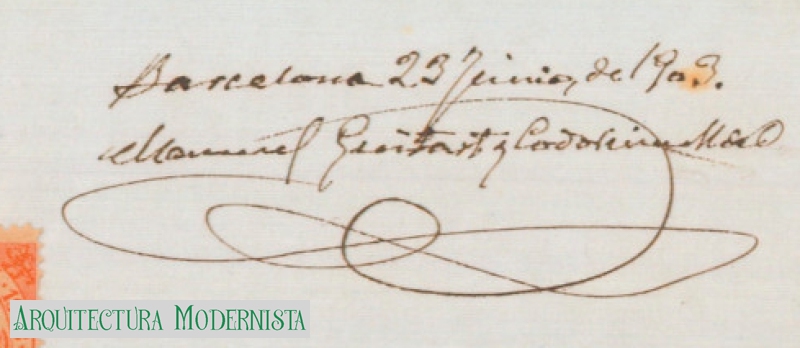 Barcelona 23 Junio, de 1903.
Manuel Guitart y
ARQUITECTURA MODERNISTA